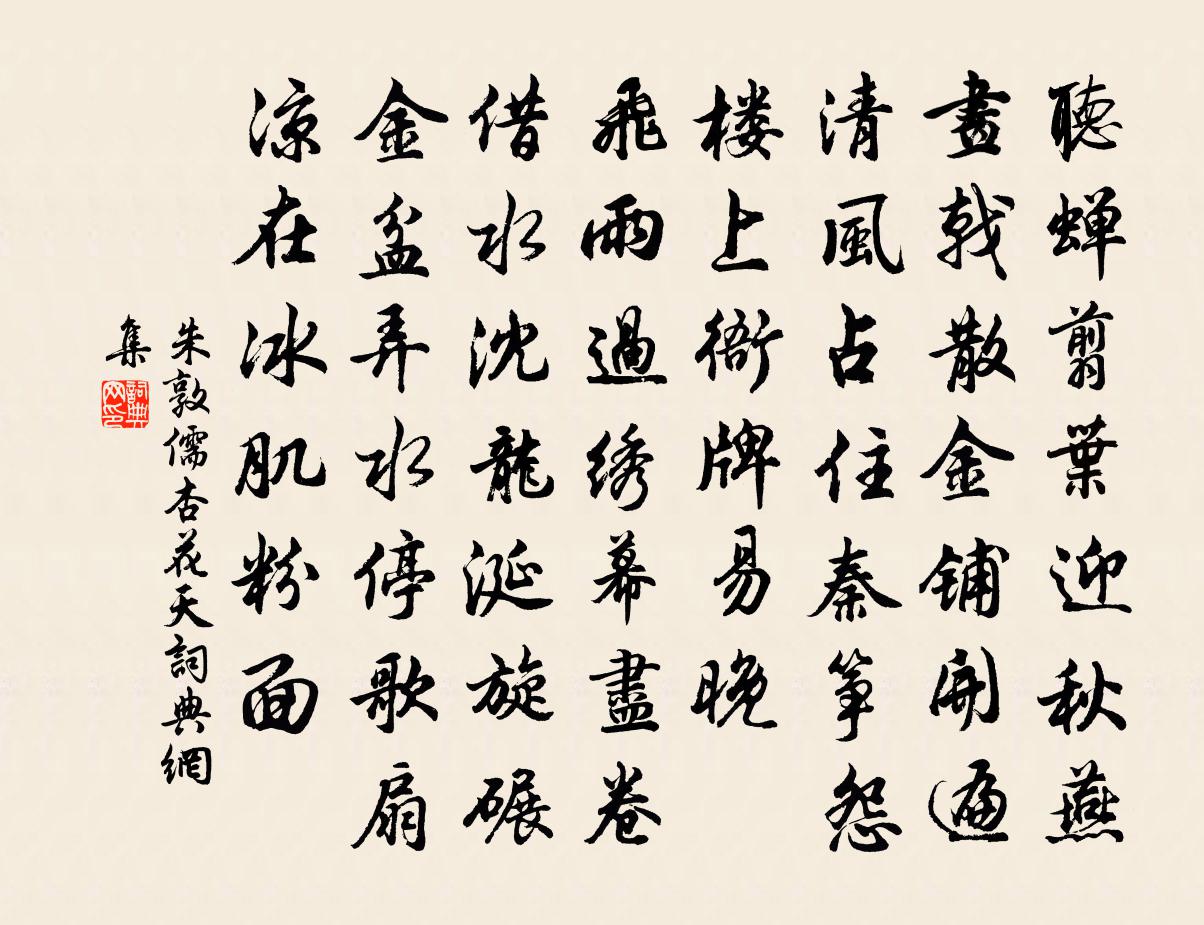 聽蝉翦葉迎秋燕
畫戟散金鋪開遍
清風占住秦筝怨
楼上衙牌易晚
飛雨過绣幕盡卷
借水沈龍涎旋碾
金盆弄水停歌扇
凉在冰肌粉面
朱敦儒杏花天詞典網
集
詞典
网印